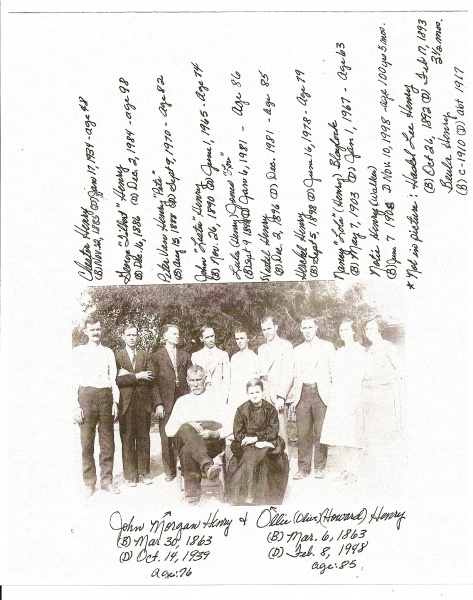 Chester Henry
(B) Nov. 22, 1885 (D) Jan 17, 1934 - age 48
George "Albert" Henry
(B) Dec. 16, 1886 (D) Dec. 2, 1984 - age 98
Peter Vaen Henry "Pete"
(B) Aug 13, 1888 (D) Sept 9, 1970 - age 82
John "Luster" Henry
(B) Nov. 26, 1890 (D) June 1, 1965 - age 74
Lula (Henry) Jones
(B) Sept 9, 1894 (D) June 6, 1981 - Age 86
Henry
(B) Dec. 2, 1896 (D) Dec. 1981 - age 85
Hershel Henry
(B) Sept 5, 1898 (D) June 16, 1978 - Age 79
Nancy "Lola" (Henry) Blaylock
(B) May 7, 1903 (D) Jan. 1, 1967 - Age 63
Notie Henry (Walker)
(B) June 7 1898 D Nov. 10, 1998 - age 100 yrs 5 mos.
* Not in picture: Haskel Lee Henry
(B) Oct 26, 1892 (D) Feb 17, 1893
3½ mos.
Beula Henry
(B) c-1910 (D) abt 1917
John Morgan Henry & Ollie (Olive)(Howard) Henry
(B) Mar 30, 1863 (B) Mar. 6, 1863
(D) Oct. 14, 1939 (D) Feb. 8, 1948
age: 76 age: 85